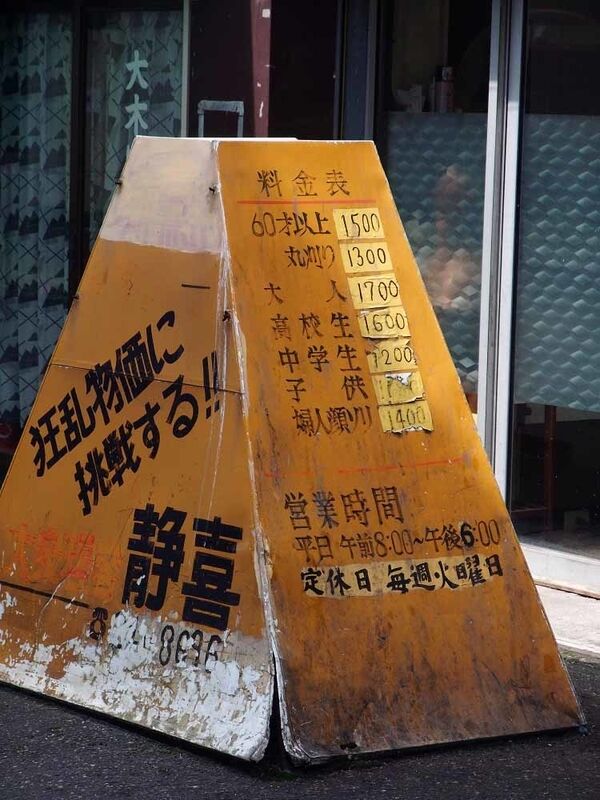 大木
狂乱物価に
挑戦する!!
静喜
8636
料金表
60才以上 1500
丸刈り 1300
大人 1700
高校生 1600
中学生 1200
子供
婦人顔ソリ 1400
営業時間
平日 午前8:00~午後6:00
定休日 毎週火曜日